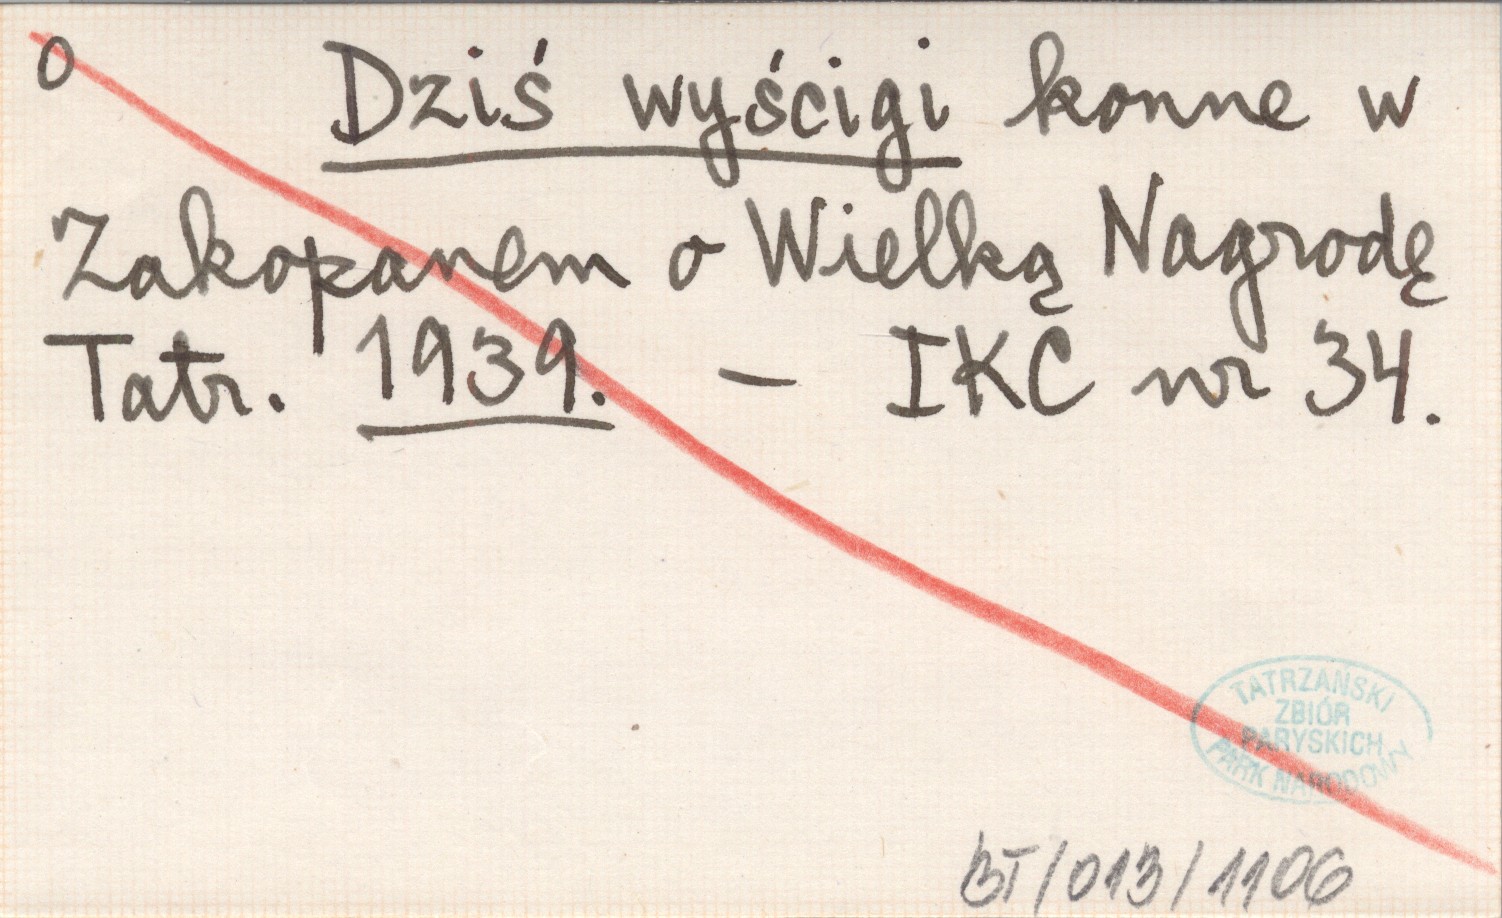 o Dziś wyścigi konne w
Zakopanem o Wielką Nagrodę
Tatr. 1939. – IKC nr 34.
TATRZAŃSKI
ZBIÓR
PARYSKICH
PARK NARODOWY
BT/013/1106